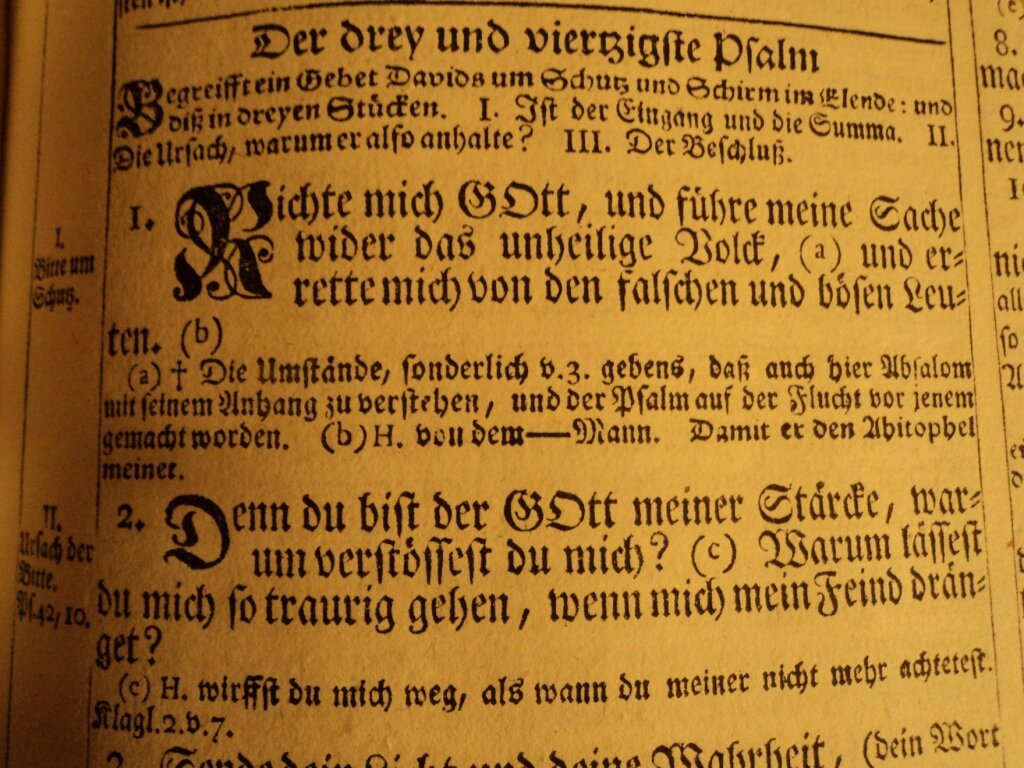 Der drey und viertzigste Psalm
Begreifft ein Gebet Davids um Schutz und Schirm im Elende: und
diß in dreyen Stücken. I. Ist der Eingang und die Summa. II.
Die Ursach, warum er also anhalte? III. Der Beschluß.
I.
Bitte um
Schutz.
1. Richte mich GOtt, und führe meine Sache
wider das unheilige Volck, (a) und er-
rette mich von den falschen und bösen Leu-
ten. (b)
(a) † Die Umstände, sonderlich v.3. gebens, daß auch hier Absalom
mit seinem Anhang zu verstehen, und der Psalm auf der Flucht vor jenem
gemacht worden. (b) H. von dem—Mann. Damit er den Ahitophel
meinet.
II.
Ursach der
Bitte.
Ps.42/10.
2. Denn du bist der GOtt meiner Stärcke, war-
um verstössest du mich? (c) Warum lässest
du mich so traurig gehen, wenn mich mein Feind drän-
get?
(c) H. wirffst du mich weg, als wann du meiner nicht mehr achtetest.
Klagl.2.v.7.
3. Sende dein Licht und deine Wahrheit, (dein Wort
8.
9.